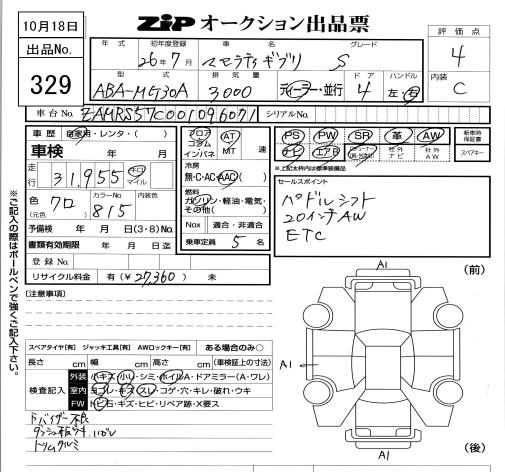 10月18日
ZiPオークション出品票
出品No.
329
年式
初年度登録
車名
グレード
26年7月
マセラティギブリ
S
型式
排気量
ドア
ハンドル
ABA-MG30A
3000
ディーラー・並行
4
左・右
評価点
4
内装
C
車台No.
ZAMRS57C001096071
シリアルNo.
車歴
自家用・レンタ・( )
車検
年 月
走行
31,955
キロ
マイル
色
(元色)
クロ
カラーNo.
815
内装色
予備検 年 月 日(3・8)No.
書類有効期限 年 月 日迄
登録No.
リサイクル料金 有(¥27,360) 未
フロア
コラム
インパネ
AT
MT
速
冷房
無・C・AC・AAC
燃料
ガソリン・軽油・電気・
その他( )
Nox
適合・非適合
乗車定員 5 名
PS
PW
SR
革
AW
新車時
保証書
ナビ
社外
AW
スペアキー
※上記太枠内は標準装備品
セールスポイント
パドルシフト
20インチAW
ETC
※ご記入の際はボールペンで強くご記入下さい。
[注意事項]
スペアタイヤ[有] ジャッキ工具[有] AWロックキー[有] ある場合のみ○
長さ cm 幅 cm 高さ cm (車検証上の寸法)
検査記入
外装
小キズ・小凹・シミ・ホイルA・ドアミラー(A・ワレ)
室内
ヨゴレ・キズ・スレ・コゲ・穴・キレ・破れ・ウキ
FW
トビ石・キズ・ヒビ・リペア跡・X要ス
ドバイザー不良
トリムクルミ
A1
(前)
A1
A1
(後)